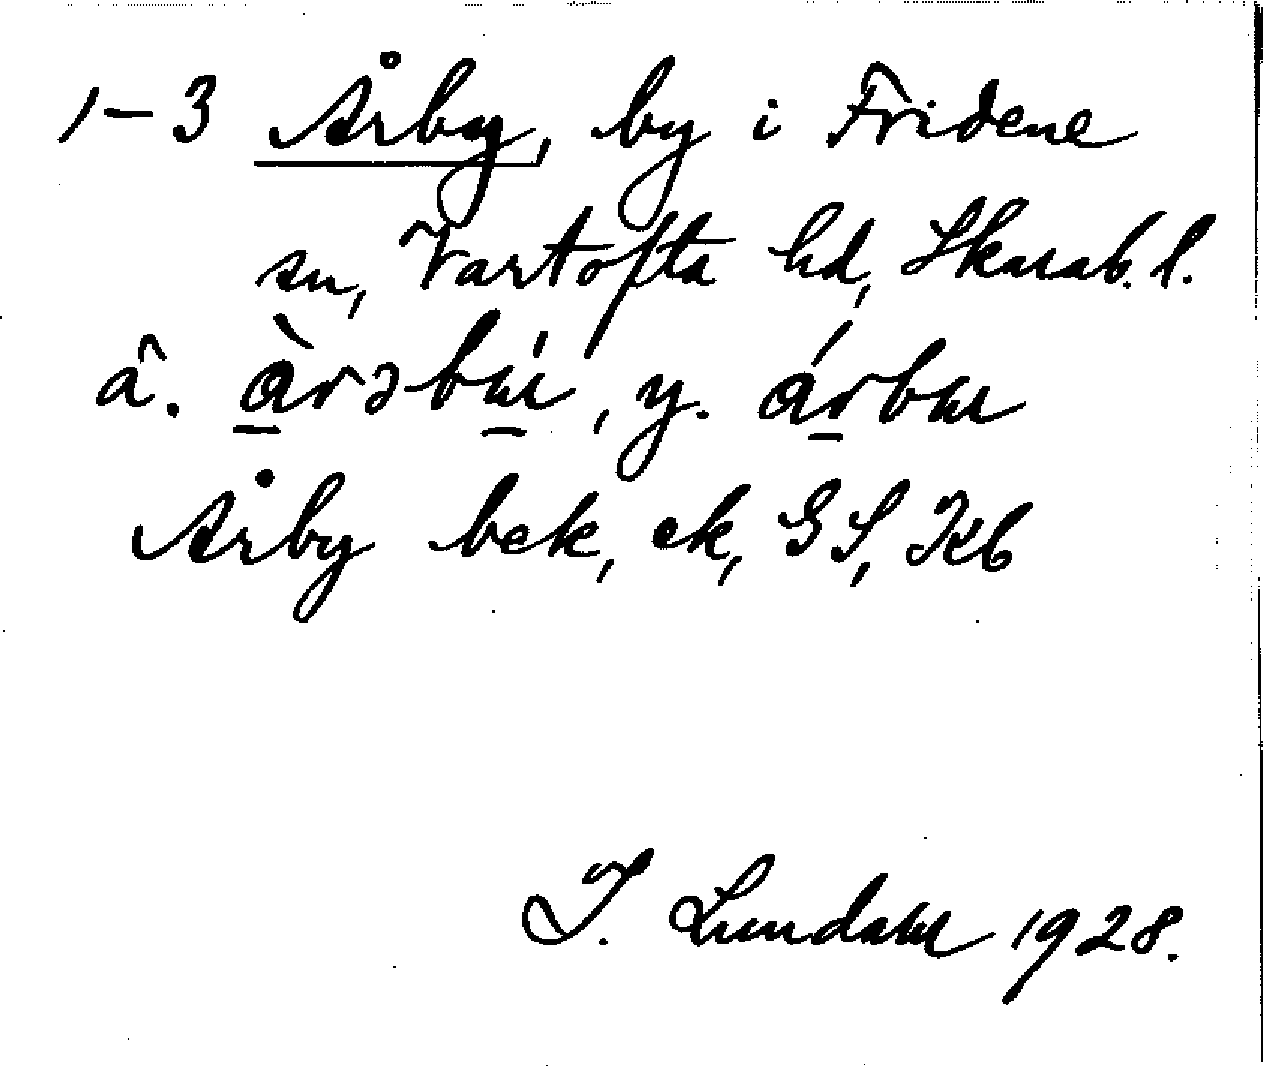 1-3 Årby, by i Fridene
sn, Vartofta hd, Skarab. l.
â. àrəbú, y. árbu
Årby bek, ek, GS, Kb
I. Lundahl 1928.